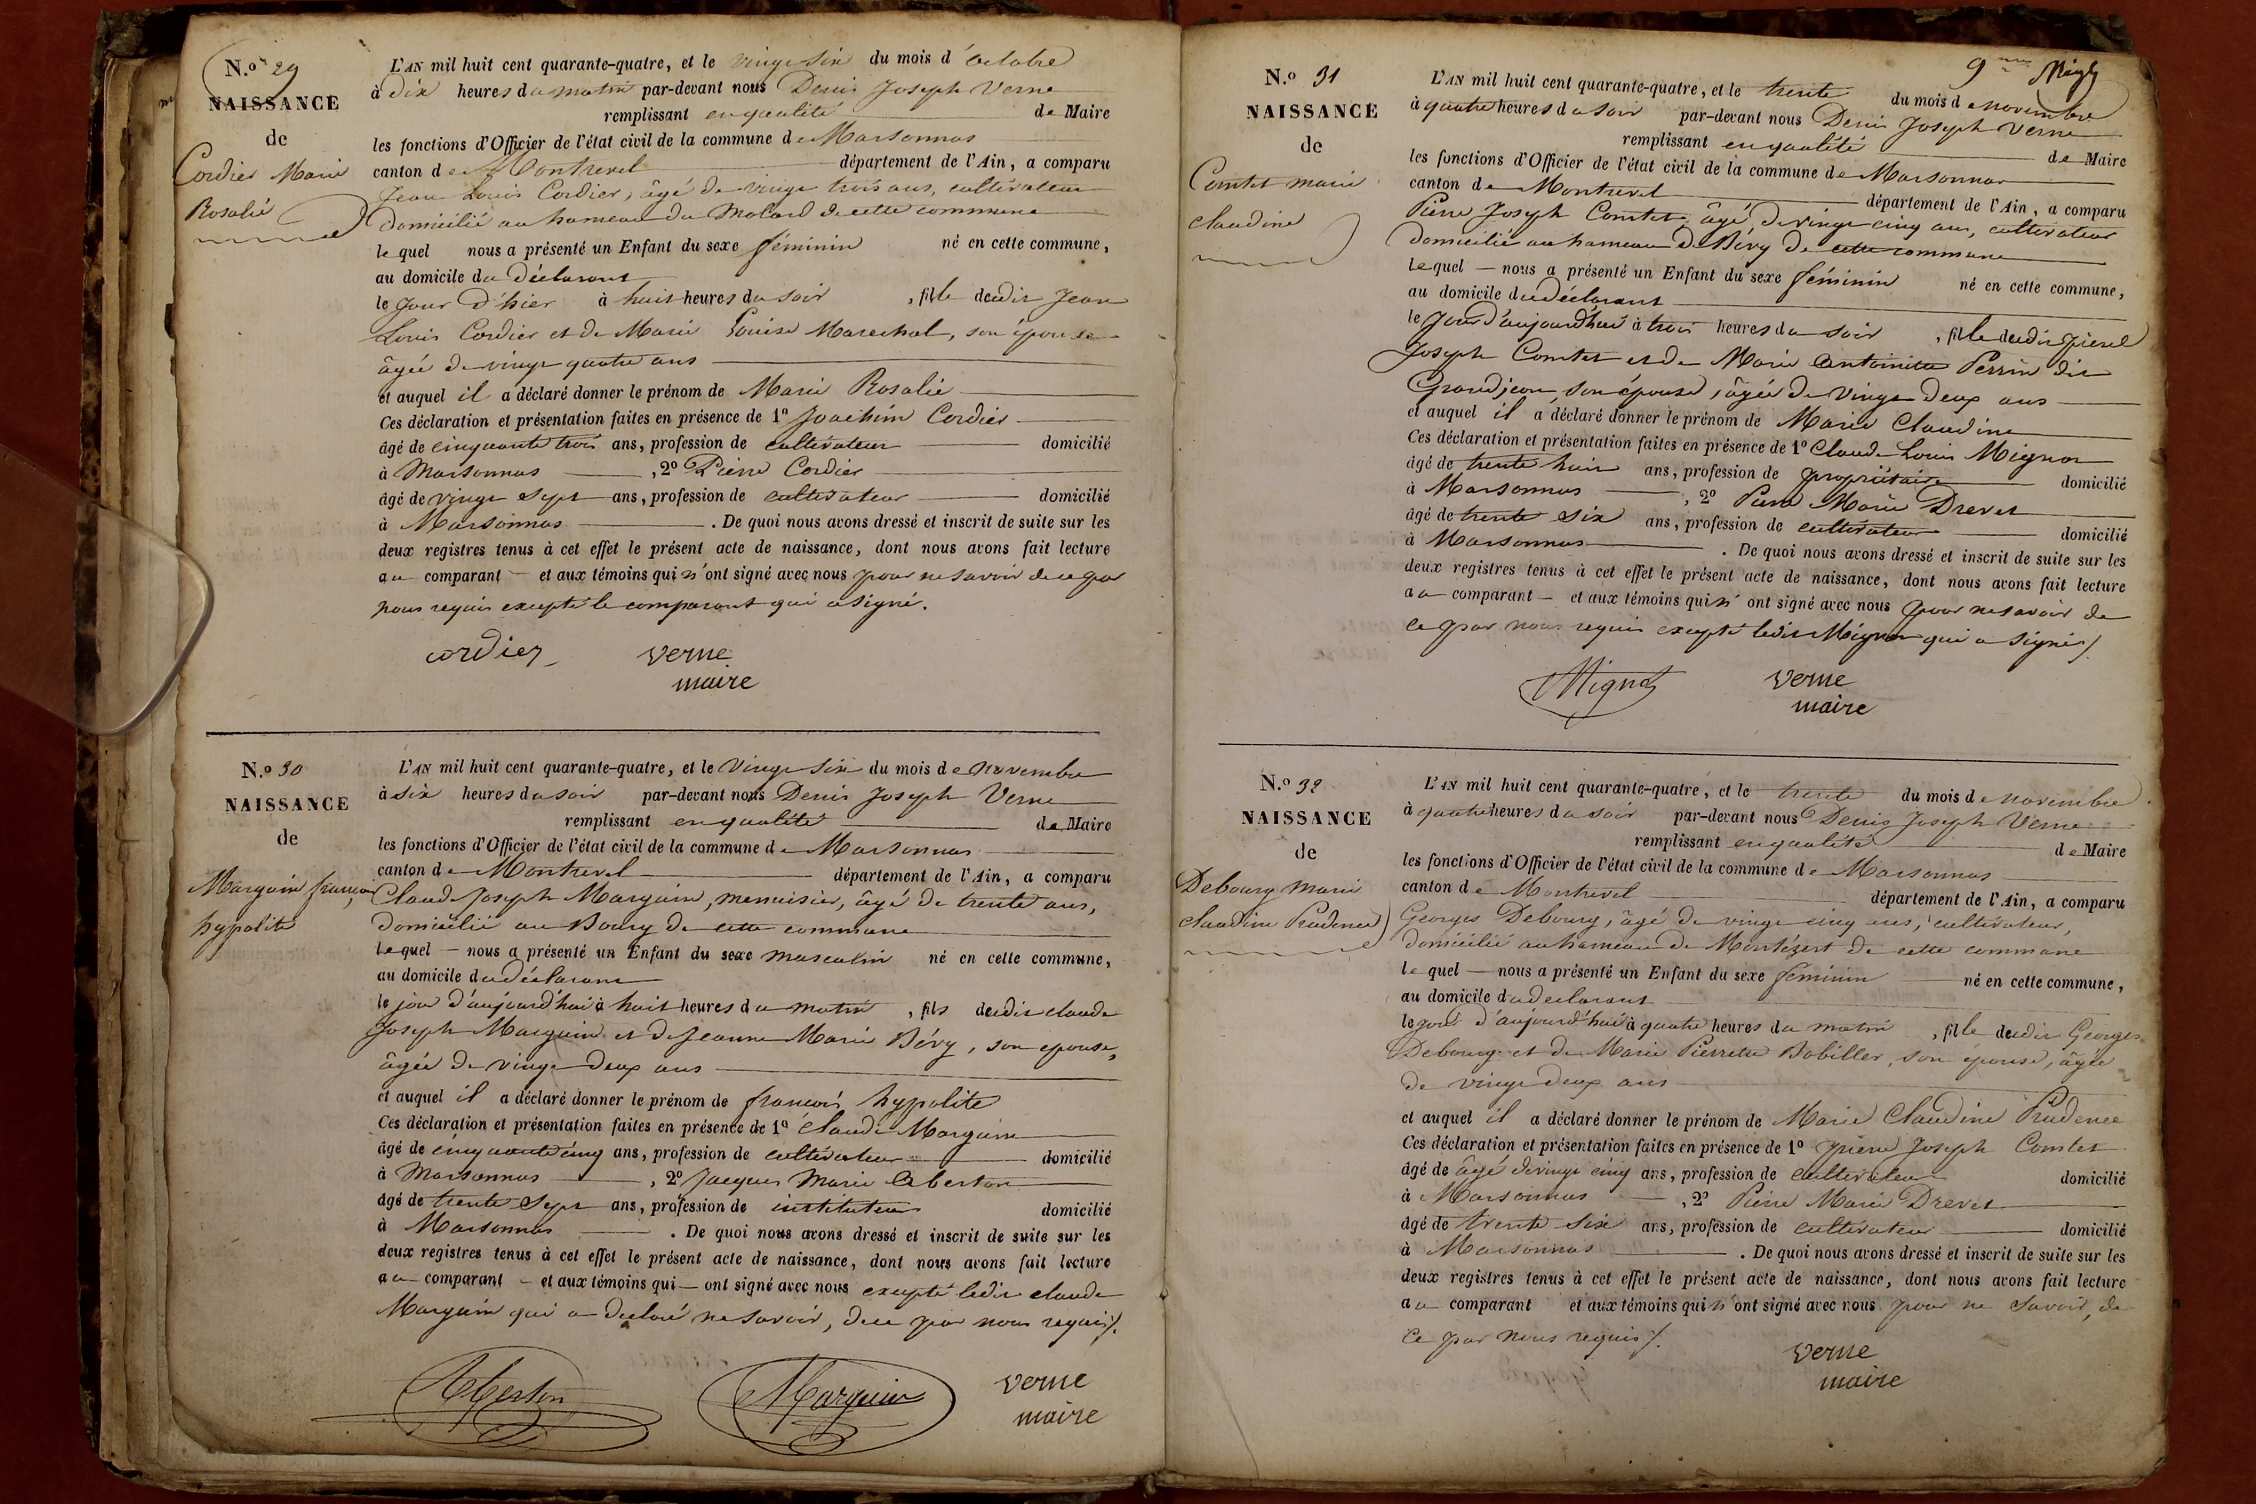 N.o 29
NAISSANCE
de
Cordier Marie
Rosalie
L'AN mil huit cent quarante-quatre, et le vingt six du mois d'octobre
à dix heures du matin par-devant nous Denis Joseph Verne
remplissant en qualité de Maire
les fonctions d'Officier de l'état civil de la commune de Marsonnas
canton de Montrevel département de l'Ain, a comparu
Jean Louis Cordier, âgé de vingt trois ans, cultivateur
domicilié au hameau du Molard de cette commune
lequel nous a présenté un Enfant du sexe féminin né en cette commune,
au domicile du déclarant
le jour d'hier à huit heures du soir, fille dudit Jean
Louis Cordier et de Marie Louise Marechal, son épouse
âgée de vingt quatre ans
et auquel il a déclaré donner le prénom de Marie Rosalie
Ces déclaration et présentation faites en présence de 1o Joachim Cordier
âgé de cinquante trois ans, profession de cultivateur domicilié
à Marsonnas, 2o Pierre Cordier
âgé de vingt sept ans, profession de cultivateur domicilié
à Marsonnas. De quoi nous avons dressé et inscrit de suite sur les
deux registres tenus à cet effet le présent acte de naissance, dont nous avons fait lecture
au comparant et aux témoins qui n'ont signé avec nous pour ne savoir de ce par
nous requis excepté le comparant qui a signé.
cordier verne
maire
N.o 30
NAISSANCE
de
Marguin françois
hypolite
L'AN mil huit cent quarante-quatre, et le vingt six du mois de novembre
à six heures du soir par-devant nous Denis Joseph Verne
remplissant en qualité de Maire
les fonctions d'Officier de l'état civil de la commune de Marsonnas
canton de Montrevel département de l'Ain, a comparu
Claude Joseph Marguin, menuisier, âgé de trente ans,
domicilié au Bourg de cette commune
lequel nous a présenté un Enfant du sexe masculin né en cette commune,
au domicile du déclarant
le jour d'aujourd'hui à huit heures du matin, fils dudit claude
Joseph Marguin et de Jeanne Marie Bévy, son epouse,
âgée de vingt deux ans
et auquel il a déclaré donner le prénom de françois hypolite
Ces déclaration et présentation faites en présence de 1o Claude Marguin
âgé de cinquante cinq ans, profession de cultivateur domicilié
à Marsonnas, 2o Jacques Marie Aberton
âgé de trente sept ans, profession de instituteur domicilié
à Marsonnas. De quoi nous avons dressé et inscrit de suite sur les
deux registres tenus à cet effet le présent acte de naissance, dont nous avons fait lecture
au comparant et aux témoins qui ont signé avec nous excepté ledit claude
Marguin qui a declaré ne savoir, de ce par nous requis/.
Aberton Marguin verne
maire
9me
N.o 31
NAISSANCE
de
Comtet marie
claudine
L'AN mil huit cent quarante-quatre, et le trente du mois de novembre
à quatre heures du soir par-devant nous Denis Joseph Verne
remplissant en qualité de Maire
les fonctions d'Officier de l'état civil de la commune de Marsonnas
canton de Montrevel département de l'Ain, a comparu
Pierre Joseph Comtet, âgé de vingt cinq ans, cultivateur
domicilié au hameau de Bévy de cette commune
lequel nous a présenté un Enfant du sexe féminin né en cette commune,
au domicile du déclarant
le jour d'aujourd'hui à trois heures du soir, fille dudit pierre
Joseph Comtet et de Marie Antoinette Perrin dit
Grandjean, son épouse, âgée de vingt deux ans
et auquel il a déclaré donner le prénom de Marie Claudine
Ces déclaration et présentation faites en présence de 1o Claude Louis Mignot
âgé de trente huit ans, profession de propriétaire domicilié
à Marsonnas, 2o Pierre Marie Drevet
âgé de trente six ans, profession de cultivateur domicilié
à Marsonnas. De quoi nous avons dressé et inscrit de suite sur les
deux registres tenus à cet effet le présent acte de naissance, dont nous avons fait lecture
au comparant et aux témoins qui n'ont signé avec nous pour ne savoir de
ce par nous requis excepté ledit Mignot qui a signé/.
Mignot verne
maire
N.o 32
NAISSANCE
de
Debourg marie
claudine Prudence
L'AN mil huit cent quarante-quatre, et le trente du mois de novembre
à quatre heures du soir par-devant nous Denis Joseph Verne
remplissant en qualité de Maire
les fonctions d'Officier de l'état civil de la commune de Marsonnas
canton de Montrevel département de l'Ain, a comparu
Georges Debourg, âgé de vingt cinq ans, cultivateur,
domicilié au hameau de Montézert de cette commune
lequel nous a présenté un Enfant du sexe féminin né en cette commune,
au domicile du declarant
le jour d'aujourd'hui à quatre heures du matin, fille dudit Georges
Debourg et de Marie Pierrette Bobiller, son épouse, âgée
de vingt deux ans
et auquel il a déclaré donner le prénom de Marie Claudine Prudence
Ces déclaration et présentation faites en présence de 1o pierre Joseph Comtet
âgé de âgé de vingt cinq ans, profession de cultivateur domicilié
à Marsonnas, 2o Pierre Marie Drevet
âgé de trente six ans, profession de cultivateur domicilié
à Marsonnas. De quoi nous avons dressé et inscrit de suite sur les
deux registres tenus à cet effet le présent acte de naissance, dont nous avons fait lecture
au comparant et aux témoins qui n'ont signé avec nous pour ne savoir, de
ce par nous requis/.
verne
maire